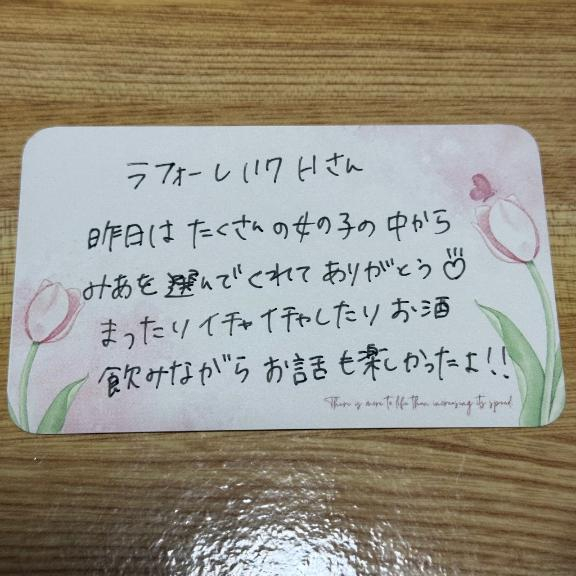 ラフォーレ 117 Hさん
昨日は たくさんの女の子の中から
みあを 選んでくれて ありがとう♡
まったりイチャイチャしたり お酒
飲みながら お話も楽しかったよ!!
There is more to life than increasing its speed.